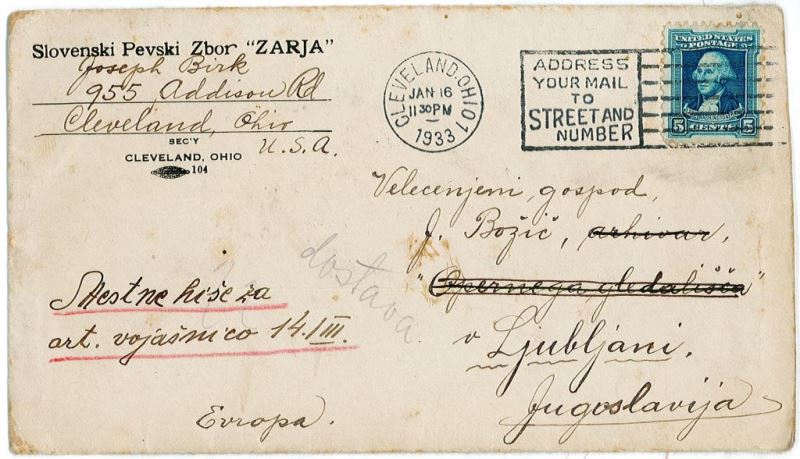 Slovenski Pevski Zbor "ZARJA"
Joseph Birk
955 Addison Rd
Cleveland, Ohio
SEC'Y
U.S.A.
CLEVELAND, OHIO
104
CLEVELAND, OHIO 1
JAN 16
11 30 PM
1933
ADDRESS
YOUR MAIL
TO
STREET AND
NUMBER
UNITED STATES
POSTAGE
5 CENTS 5
Velecenjeni gospod,
J. Božič, arhivar,
"Opernega gledališča"
v Ljubljani.
Jugoslavija
dostava
Mestne hiše za
art. vojašnico 14./III.
Evropa.